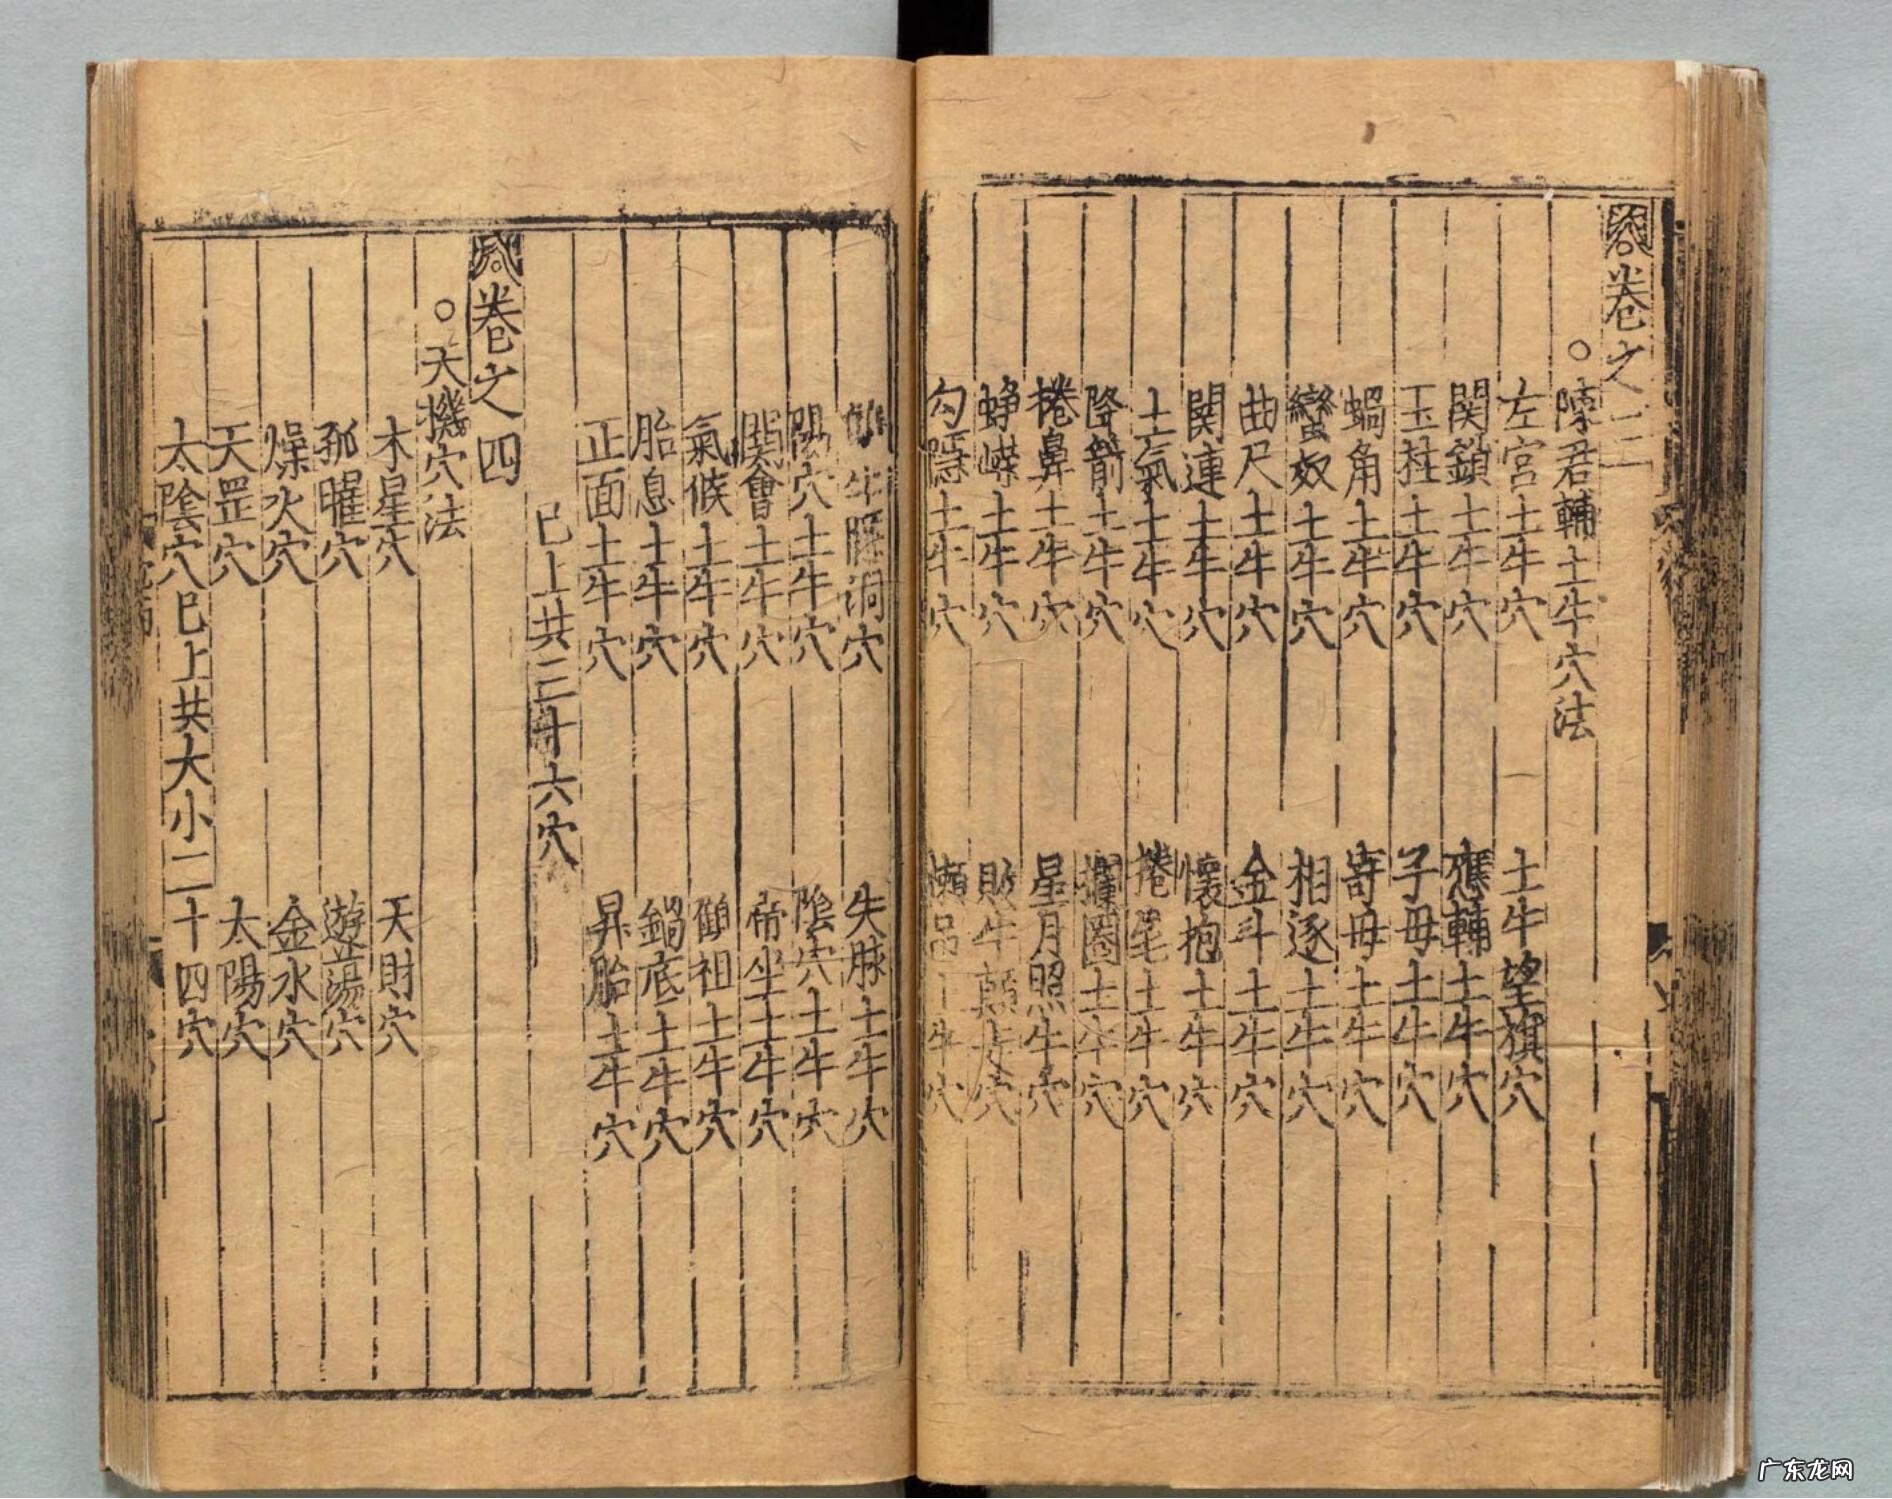 卷之三
○陳君輔土牛穴法
左宮土牛穴 土牛望旗穴
関鎖土牛穴 應輔土牛穴
玉柱土牛穴 子母土牛穴
蝸角土牛穴 寄母土牛穴
蠻奴土牛穴 相逐土牛穴
曲尺土牛穴 金斗土牛穴
関連土牛穴 懷抱土牛穴
土氣土牛穴 捲尾土牛穴
降箭土牛穴 攔圈土牛穴
捲鼻土牛穴 星月照牛穴
蜂嶸土牛穴 敗牛顛穴
勾隠土牛穴 懶土牛穴
牛洞穴 失脉土牛穴
陽穴土牛穴 陰穴土牛穴
関會土牛穴 帝坐土牛穴
氣候土牛穴 祖土牛穴
胎息土牛穴 鍋底土牛穴
正面土牛穴 昇胎土牛穴
已上共三十六穴
卷之四
○天機穴法
木星穴 天財穴
孤曜穴 遊蕩穴
燥火穴 金水穴
天罡穴 太陽穴
太陰穴已上共大小二十四穴
广东龙网